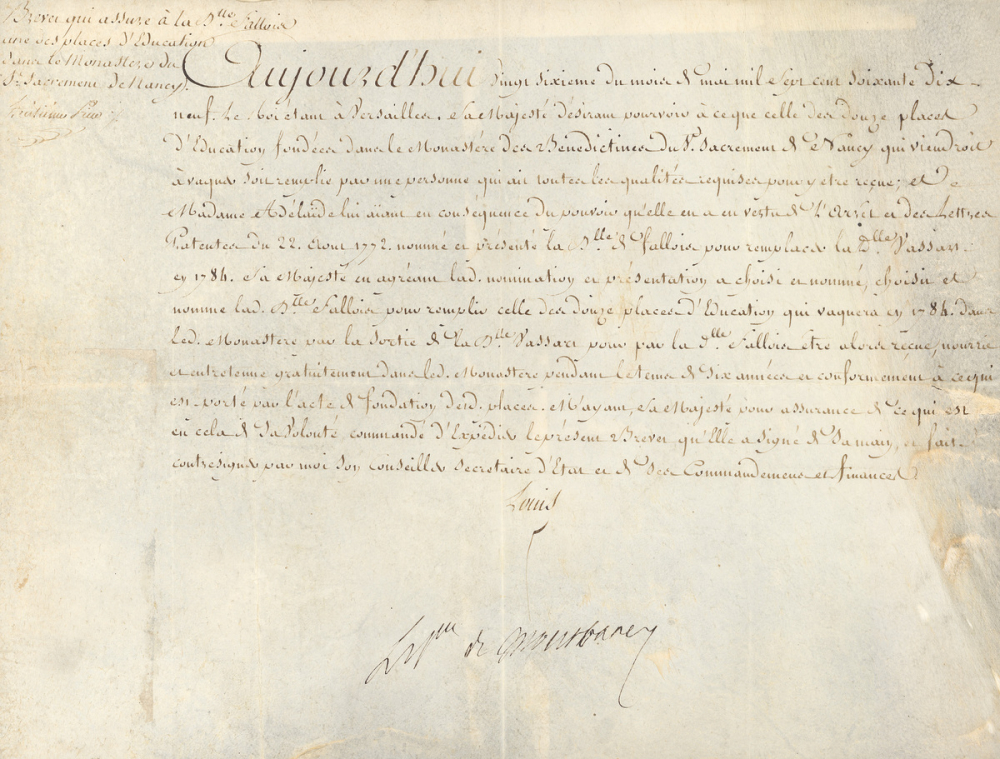 Brevet qui assure à la D.lle Fallois
une des places d'Education
dans le Monastere du
St. Sacrement de Nancy.
Aujourd'hui Vingt sixieme du mois de mai mil Sept cent Soixante Dix
neuf. Le Roi étant à Versailles. Sa Majesté désirant pourvoir à ce que celle des douze places
d'Education fondées dans le Monastére des Benedictines du St. Sacrement de Nancy qui viendroit
à vaquer soit remplie par une personne qui ait toutes les qualités requises pour y être reçue, et
Madame Adélaïde lui aïant en conséquence du pouvoir qu'elle en a en vertu de l'Arrêt et des Lettres
Patentes du 22. Aout 1772. nommé et présenté la D.lle de Fallois pour remplacer la D.lle Vassart
en 1784. Sa Majesté en agréant lad. nomination et présentation a choisi et nommé, choisit et
nomme lad. D.lle Fallois pour remplir celle des douze places d'Education qui vaquera en 1784. dans
led. Monastere par la Sortie de la D.lle Vassart pour par la D.lle Fallois être alors reçue, nourrie
et entretenue gratuitement dans led. Monastere pendant le tems de Six années et conformement à ce qui
est porté par l'acte de fondation desd. places. M'ayant, Sa Majesté pour assurance de ce qui est
en cela de Sa Volonté, commandé d'Expédier le présent Brevet qu'Elle a signé de Sa main, et fait
contresigner par moi Son Conseiller Secretaire d'Etat et de Ses Commandemens et finances.
Louis
Le Pce de Montbarey